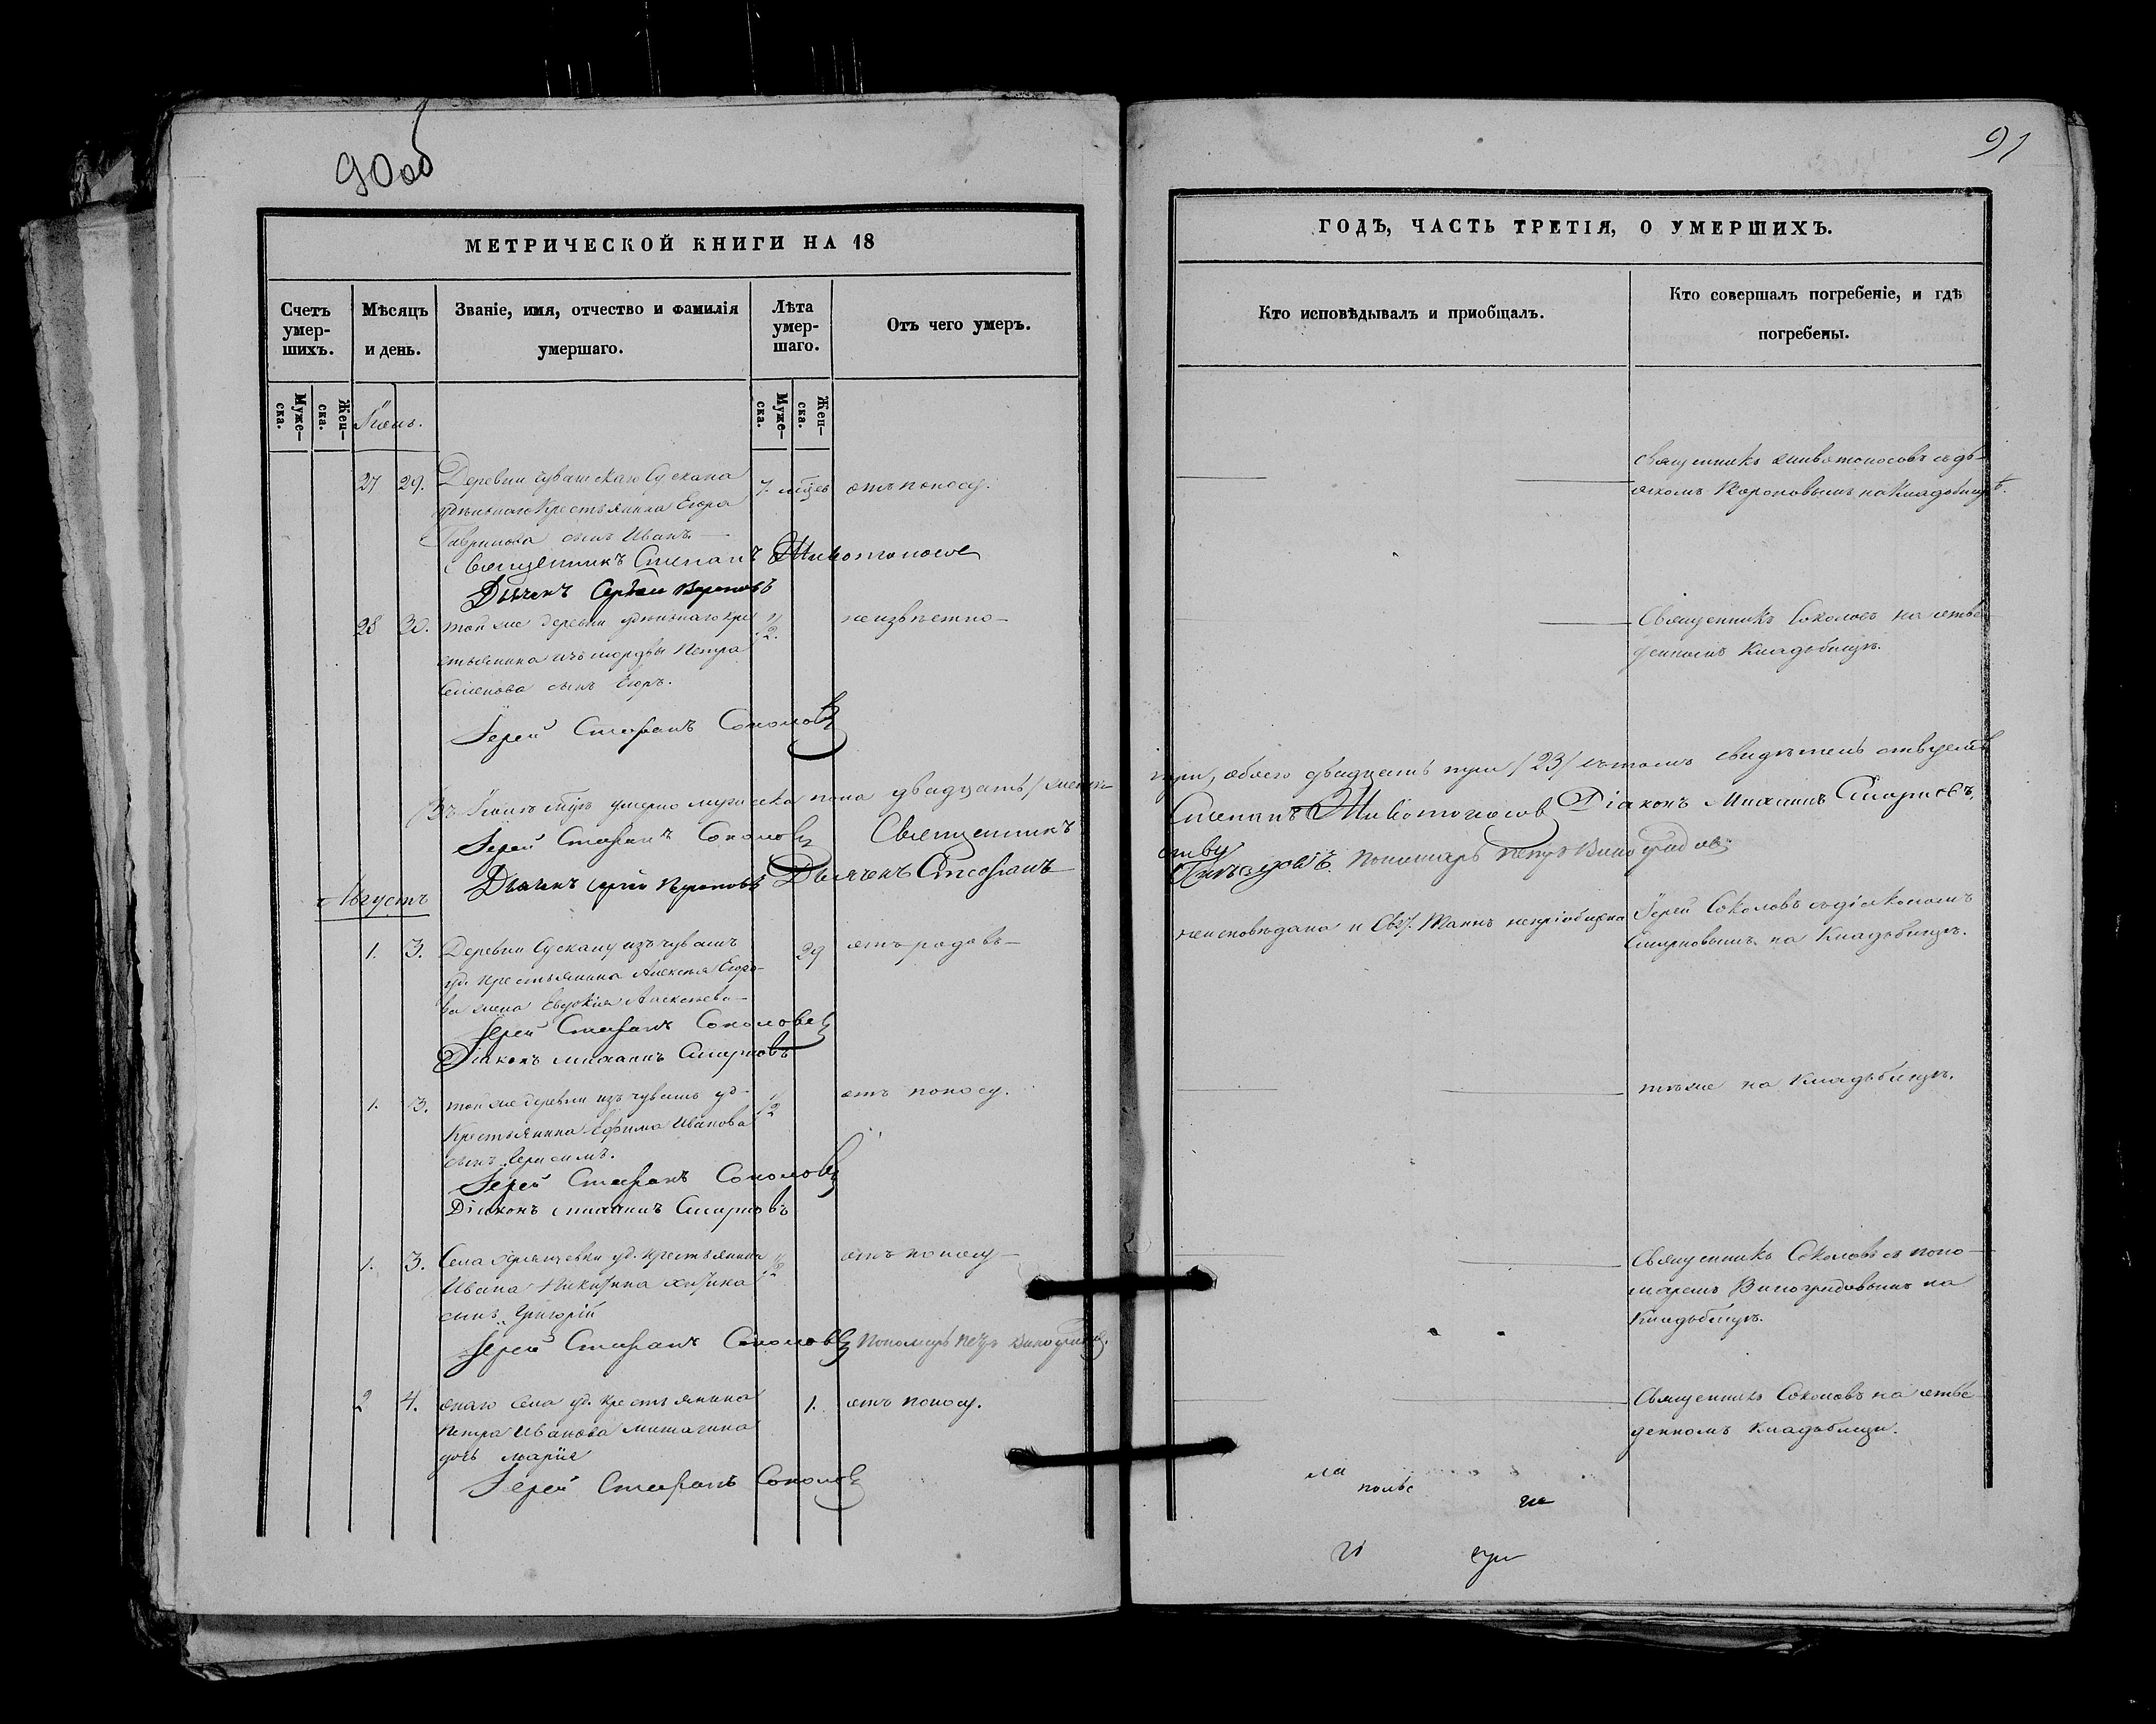 90об
МЕТРИЧЕСКОЙ КНИГИ НА 18
Счетъ умер-шихъ.
Мѣсяцъ и день.
Званіе, имя, отчество и фамилія умершаго.
Лѣта умер-шаго.
Отъ чего умеръ.
Муже-ска.
Жен-ска.
Муже-ска.
Жен-ска.
Іюль.
27 29. Деревни чувашскаго Сускана 7. мцев отъ поносу.
удѣльнаго Крестьянина Егора
Гаврилова сынъ Иванъ
Священникъ Стефанъ Животоносов
Дьячекъ Сергѣй Вороновъ
28 30. той же деревни удѣльнаго кре 1/2. неизвѣстно
стьянина изъ мордвы Петра
Семенова сынъ Егоръ.
Іерей Стефанъ Соколовъ
Въ Іюлѣ мцѣ умерло мужеска пола двадцать женск
Іерей Стефанъ Соколовъ Священникъ
Дьячекъ Сергѣй Вороновъ Дьячекъ Стефанъ
Августъ
1. 3. Деревни Сускану изъ чувашъ 29 отъ родовъ
уд. крестьянина Алексѣя Егоро-
ва жена Евдокія Алексѣева
Іерей Стефанъ Соколовъ
Діаконъ Михаилъ Смирновъ
1. 3. той же деревни изъ чувашъ уд- 1/2 отъ поносу.
Крестьянина Ефима Иванова
сынъ Герасимъ.
Іерей Стефанъ Соколовъ
Діаконъ Михаилъ Смирновъ
1. 3. Села Хрящевки уд. Крестьянина 1/2 отъ поносу
Ивана Никитина
сынъ Григорій
Іерей Стефанъ Соколовъ Пономарь Петръ Виноградов.
2 4. онаго Села уд. крестьянина 1. отъ поносу.
Петра Иванова Мишагина
дочь Марія
Іерей Стефанъ Соколовъ
91
ГОДЪ, ЧАСТЬ ТРЕТІЯ, О УМЕРШИХЪ.
Кто исповѣдывалъ и пріобщалъ.
Кто совершалъ погребеніе, и гдѣ погребены.
Священникъ Животоносовъ съ дь-
ячкомъ Вороновымъ на Кладбищѣ.
Священникъ Соколовъ на отве
денномъ Кладбищѣ.
три, обоего двадцать три /23/ въ томъ свидѣтельствуемъ
Стефанъ Животоносов Діаконъ Михаилъ Смирновъ,
Пономарь Петръ Виноградов.
неисповѣдана и Свт. Таинъ непріобщена Іерей Соколовъ съ діакономъ
Смирновымъ на Кладбищѣ.
тѣже на Кладбищѣ.
Священникъ Соколовъ съ поно-
маремъ Виноградовымъ на
Кладбищѣ.
Священникъ Соколовъ на отве
денномъ Кладбищѣ.